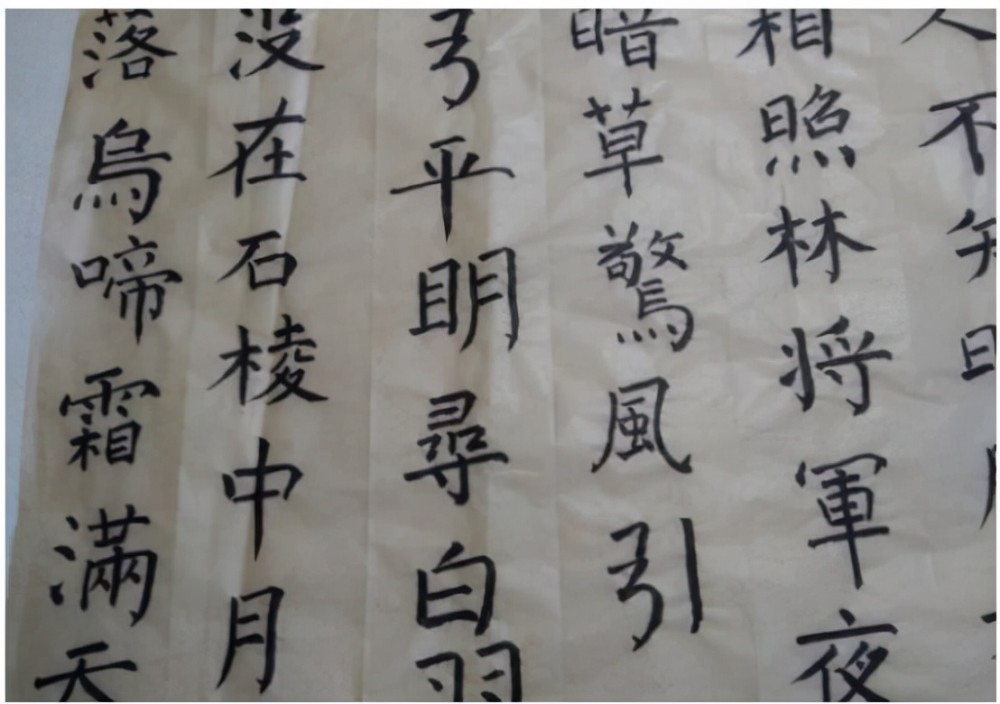 人不知
相照林将軍夜
暗草驚風引
弓平明尋白羽
没在石棱中月
落烏啼霜滿天